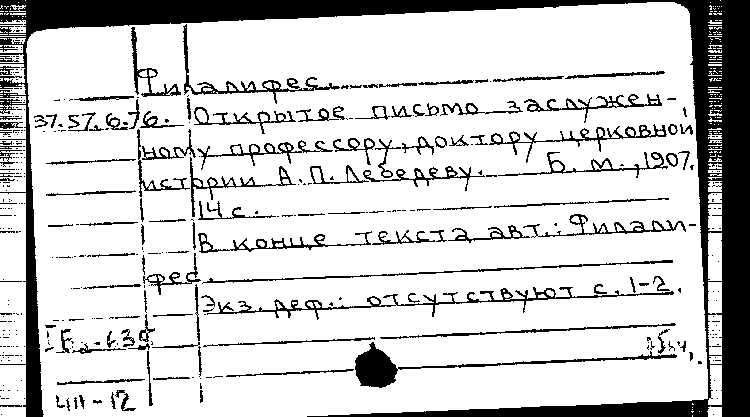 Филалифес.
37.57.6.76. Открытое письмо заслужен-
ному профессору, доктору церковной
истории А.П. Лебедеву. Б. м., 1907.
14 с.
В конце текста авт.: Филали-
фес.
Экз. деф.: отсутствуют с. 1-2.